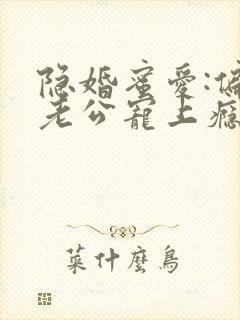 隐婚蜜爱:偏
老公宠上瘾
菜什麼鸟